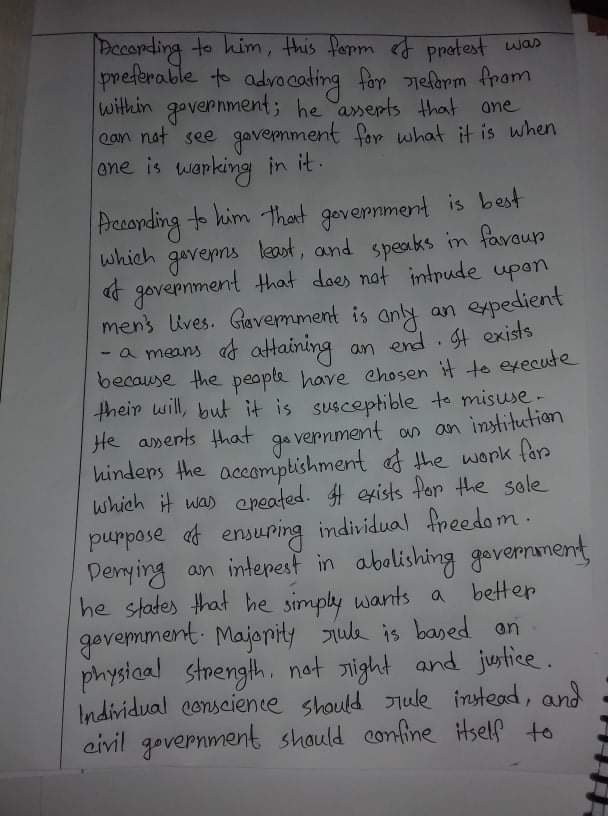 According to him, this form of protest was
preferable to advocating for reform from
within government; he asserts that one
can not see government for what it is when
one is working in it.
According to him that government is best
which governs least, and speaks in favour
of government that does not intrude upon
men's lives. Government is only an expedient
- a means of attaining an end. It exists
because the people have chosen it to execute
their will, but it is susceptible to misuse.
He asserts that government as an institution
hinders the accomplishment of the work for
which it was created. It exists for the sole
purpose of ensuring individual freedom.
Denying an interest in abolishing government,
he states that he simply wants a better
government. Majority rule is based on
physical strength, not right and justice.
Individual conscience should rule instead, and
civil government should confine itself to